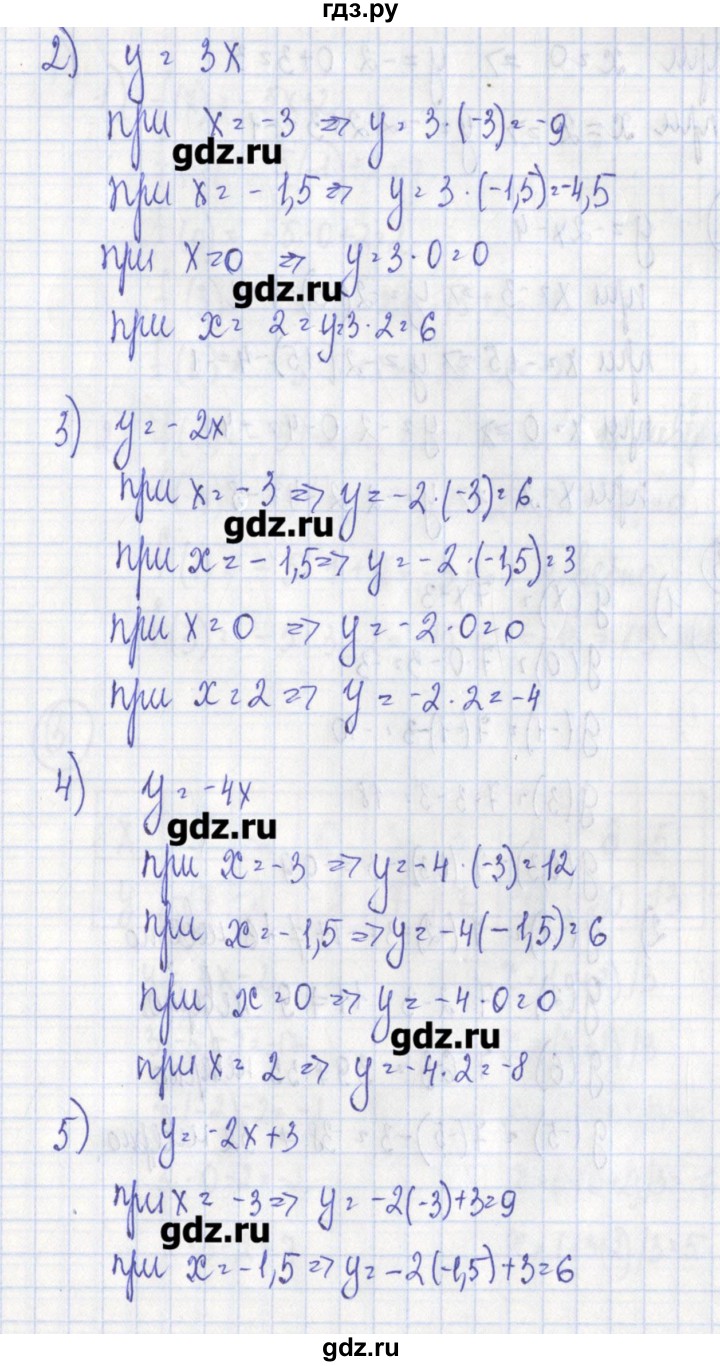 гдз.ру
2) y = 3x
при x = -3 => y = 3·(-3) = -9
gdz.ru
при x = -1,5 => y = 3·(-1,5) = -4,5
при x = 0 => y = 3·0 = 0
gdz.ru
при x = 2 = y = 3·2 = 6
3) y = -2x
при x = -3 => y = -2·(-3) = 6
gdz.ru
при x = -1,5 => y = -2·(-1,5) = 3
при x = 0 => y = -2·0 = 0
при x = 2 => y = -2·2 = -4
4) y = -4x
gdz.ru
при x = -3 => y = -4·(-3) = 12
при x = -1,5 => y = -4(-1,5) = 6
при x = 0 => y = -4·0 = 0
gdz.ru
при x = 2 => y = -4·2 = -8
5) y = -2x+3
при x = -3 => y = -2(-3)+3=9
gdz.ru
при x = -1,5 => y = -2(-1,5)+3=6
gdz.ru